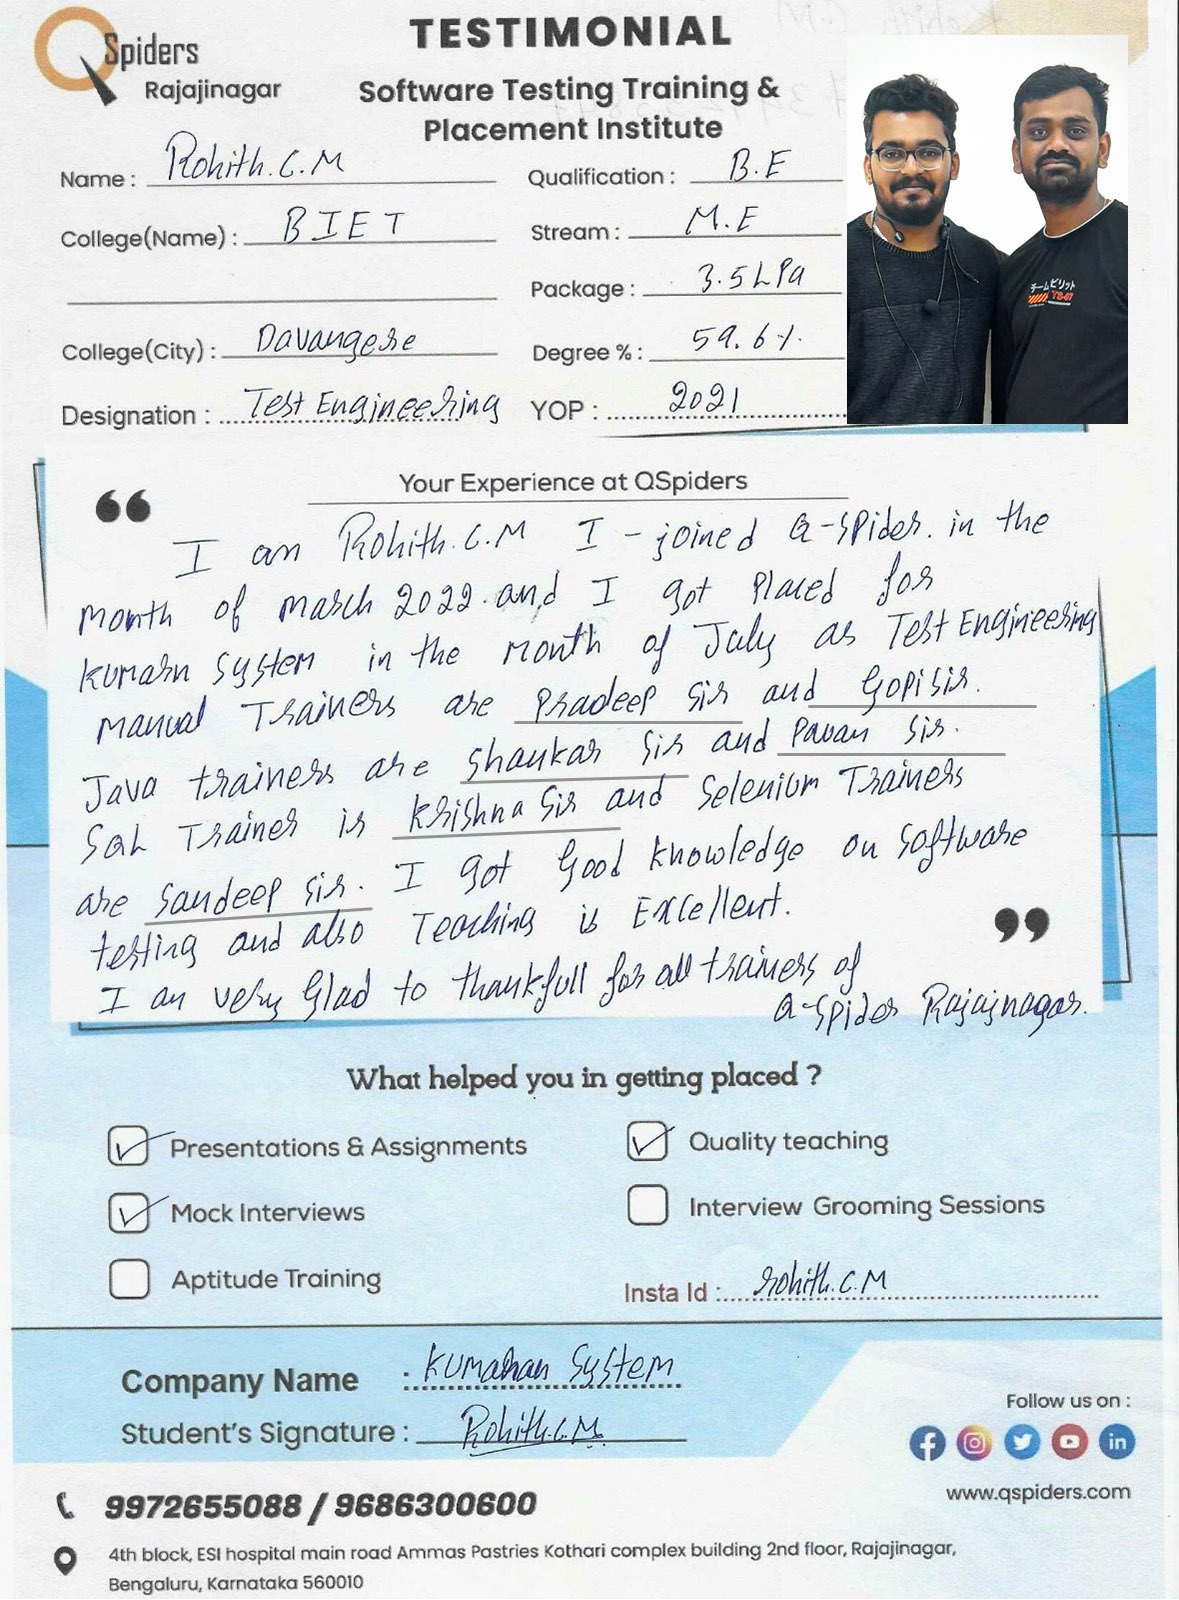 QSpiders
Rajajinagar
TESTIMONIAL
Software Testing Training &
Placement Institute
Name : Rohith.C.M
Qualification : B.E
College(Name) : BIET
Stream : M.E
Package : 3.5 LPa
College(City) : Davangere
Degree % : 59.6%
Designation : Test Engineering
YOP : 2021
チームピリット
TS-07
Your Experience at QSpiders
“
I am Rohith.C.M I - joined Q-spider. in the
month of march 2022. and I got placed for
kumarn system in the month of July as Test Engineering
manual Trainers are Pradeep sir and Gopi sir.
Java trainers are shankar sir and Pavan sir.
SQL Trainer is Krishna sir and selenium Trainers
are Sandeep sir. I got good knowledge on software
testing and also Teaching is Excellent.
”
I am very glad to thankfull for all trainers of
Q-spider Rajajnagar.
What helped you in getting placed ?
Presentations & Assignments
Quality teaching
Mock Interviews
Interview Grooming Sessions
Aptitude Training
Insta Id : rohith.C.M
Company Name : Kumaran System
Student's Signature : Rohith.C.M
Follow us on :
www.qspiders.com
9972655088 / 9686300600
4th block, ESI hospital main road Ammas Pastries Kothari complex building 2nd floor, Rajajinagar,
Bengaluru, Karnataka 560010